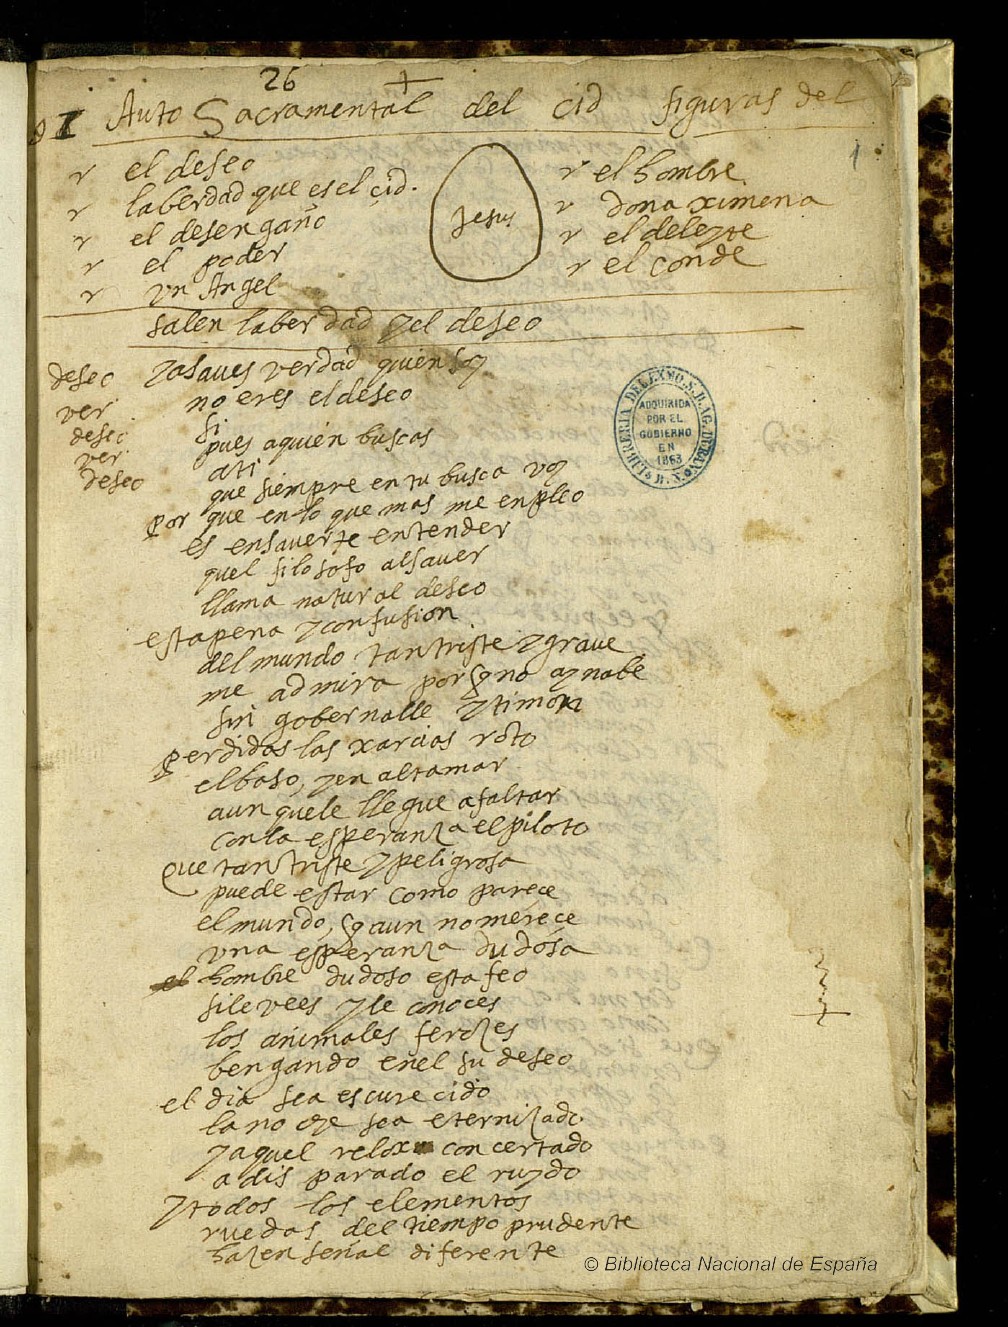 26
+
1 Auto Sacramental del cid figuras del
1
r el deseo
r laberdad que es el çid.
r el desengaño
r el poder
r vn Angel
Jesus
r el hombre
r dona ximena
r el deleyte
r el conde
salen laberdad y el deseo
deseo yasaues verdad quien soy
ver no eres el deseo
deseo si
pues aquien buscas
ver. ati
deseo que siempre en tu busca voy
por que en lo que mas me enpleo
es ensauerte entender
quel filosofo alsauer
llama natural deseo
esta pena y confusion
del mundo tan triste y graue
me admira por q no ay nabe
sin gobernalle y timon
perdidas las xarcias roto
elbaso, y en altamar
aun quele llegue afaltar
con la esperanza el piloto
que tan triste y peligrosa
puede estar como pareçe
el mundo, q aun no mereçe
vna esperanza dudosa
el hombre dudoso esta feo
sile vees y le conoces
los animales ferozes
bengando en el su deseo
el dia sea escureçido
la noche sea eternizado
yaquel relox concertado
a dis parado el ruydo
y todos los elementos
ruedas del tiempo prudente
hazen señal diferente
LIBRERIA DEL EXMO. S. D. AG. DURAN
ADQUIRIDA
POR EL
GOBIERNO
EN
1863
B. N.
© Biblioteca Nacional de España